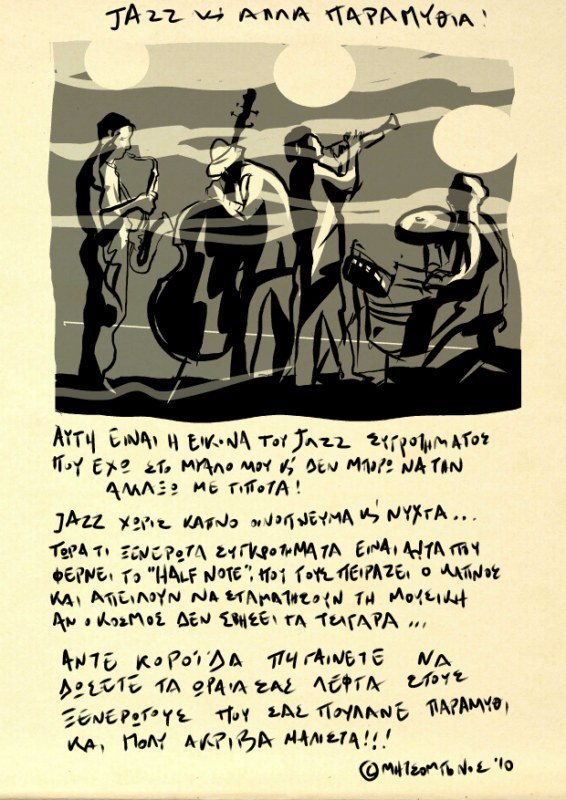 JAZZ Κ' ΑΛΛΑ ΠΑΡΑΜΥΘΙΑ!
ΑΥΤΗ ΕΙΝΑΙ Η ΕΙΚΟΝΑ ΤΟΥ JAZZ ΣΥΓΡΟΤΗΜΑΤΟΣ
ΠΟΥ ΕΧΩ ΣΤΟ ΜΥΑΛΟ ΜΟΥ Κ' ΔΕΝ ΜΠΟΡΩ ΝΑ ΤΗΝ
ΑΛΛΑΞΩ ΜΕ ΤΙΠΟΤΑ!
JAZZ ΧΩΡΙΣ ΚΑΠΝΟ ΟΙΝΟΠΝΕΥΜΑ Κ' ΝΥΧΤΑ...
ΤΩΡΑ ΤΙ ΞΕΝΕΡΩΤΑ ΣΥΓΚΡΟΤΗΜΑΤΑ ΕΙΝΑΙ ΑΥΤΑ ΠΟΥ
ΦΕΡΝΕΙ ΤΟ "HALF NOTE", ΠΟΥ ΤΟΥΣ ΠΕΙΡΑΖΕΙ Ο ΚΑΠΝΟΣ
ΚΑΙ ΑΠΕΙΛΟΥΝ ΝΑ ΣΤΑΜΑΤΗΣΟΥΝ ΤΗ ΜΟΥΣΙΚΗ
ΑΝ Ο ΚΟΣΜΟΣ ΔΕΝ ΣΒΗΣΕΙ ΤΑ ΤΣΙΓΑΡΑ...
ΑΝΤΕ ΚΟΡΟΪΔΑ ΠΗΓΑΙΝΕΤΕ ΝΑ
ΔΩΣΕΤΕ ΤΑ ΩΡΑΙΑ ΣΑΣ ΛΕΦΤΑ ΣΤΟΥΣ
ΞΕΝΕΡΩΤΟΥΣ ΠΟΥ ΣΑΣ ΠΟΥΛΑΝΕ ΠΑΡΑΜΥΘΙ
ΚΑΙ ΠΟΛΥ ΑΚΡΙΒΑ ΜΑΛΙΣΤΑ!!!
© ΜΗΤΣΟΜΠΟΝΟΣ '10